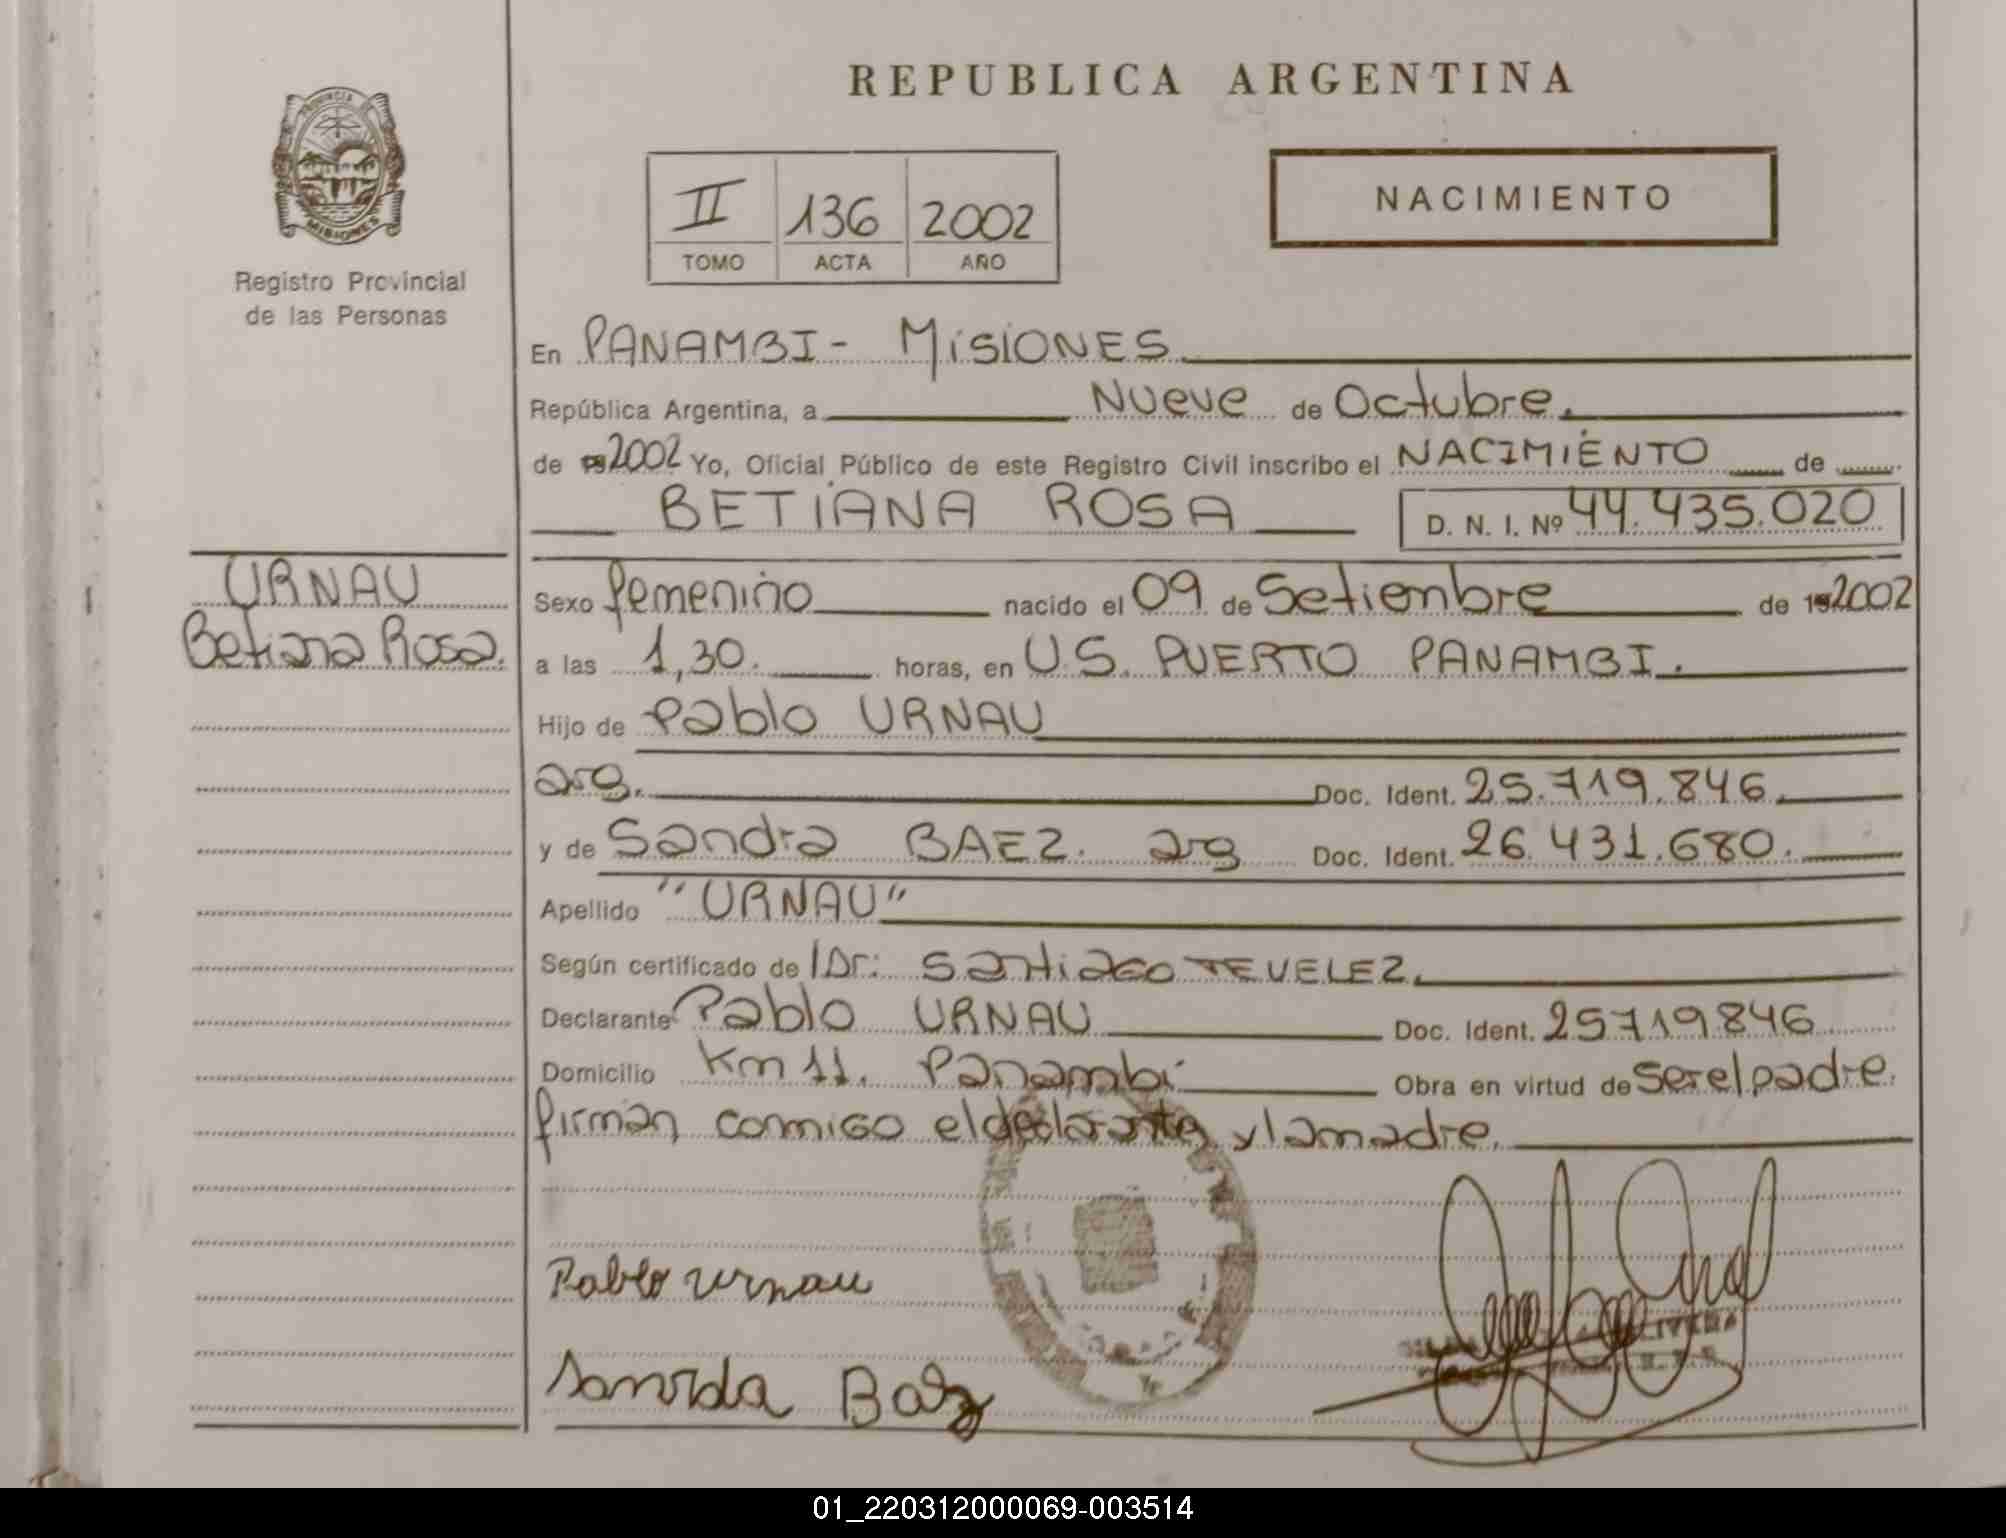 REPUBLICA ARGENTINA
PROVINCIA DE
MISIONES
Registro Provincial
de las Personas
II 136 2002
TOMO ACTA AÑO
NACIMIENTO
En PANAMBI - MISIONES
República Argentina, a Nueve de Octubre.
de 2002 Yo, Oficial Público de este Registro Civil inscribo el NACIMIENTO de
BETIANA ROSA D. N. I. Nº 44.435.020
URNAU
Betiana Rosa.
Sexo femenino nacido el 09 de Setiembre de 2002
a las 1,30. horas, en U.S. PUERTO PANAMBI.
Hijo de Pablo URNAU
arg. Doc. Ident. 25.719.846.
y de Sandra BAEZ. arg Doc. Ident. 26.431.680.
Apellido "URNAU"
Según certificado de Dr: Santiago TEVELEZ.
Declarante Pablo URNAU Doc. Ident. 25719846
Domicilio Km 11. Panambi Obra en virtud de ser el padre.
firman conmigo el declarante y la madre.
Pablo Urnau
01_220312000069-003514